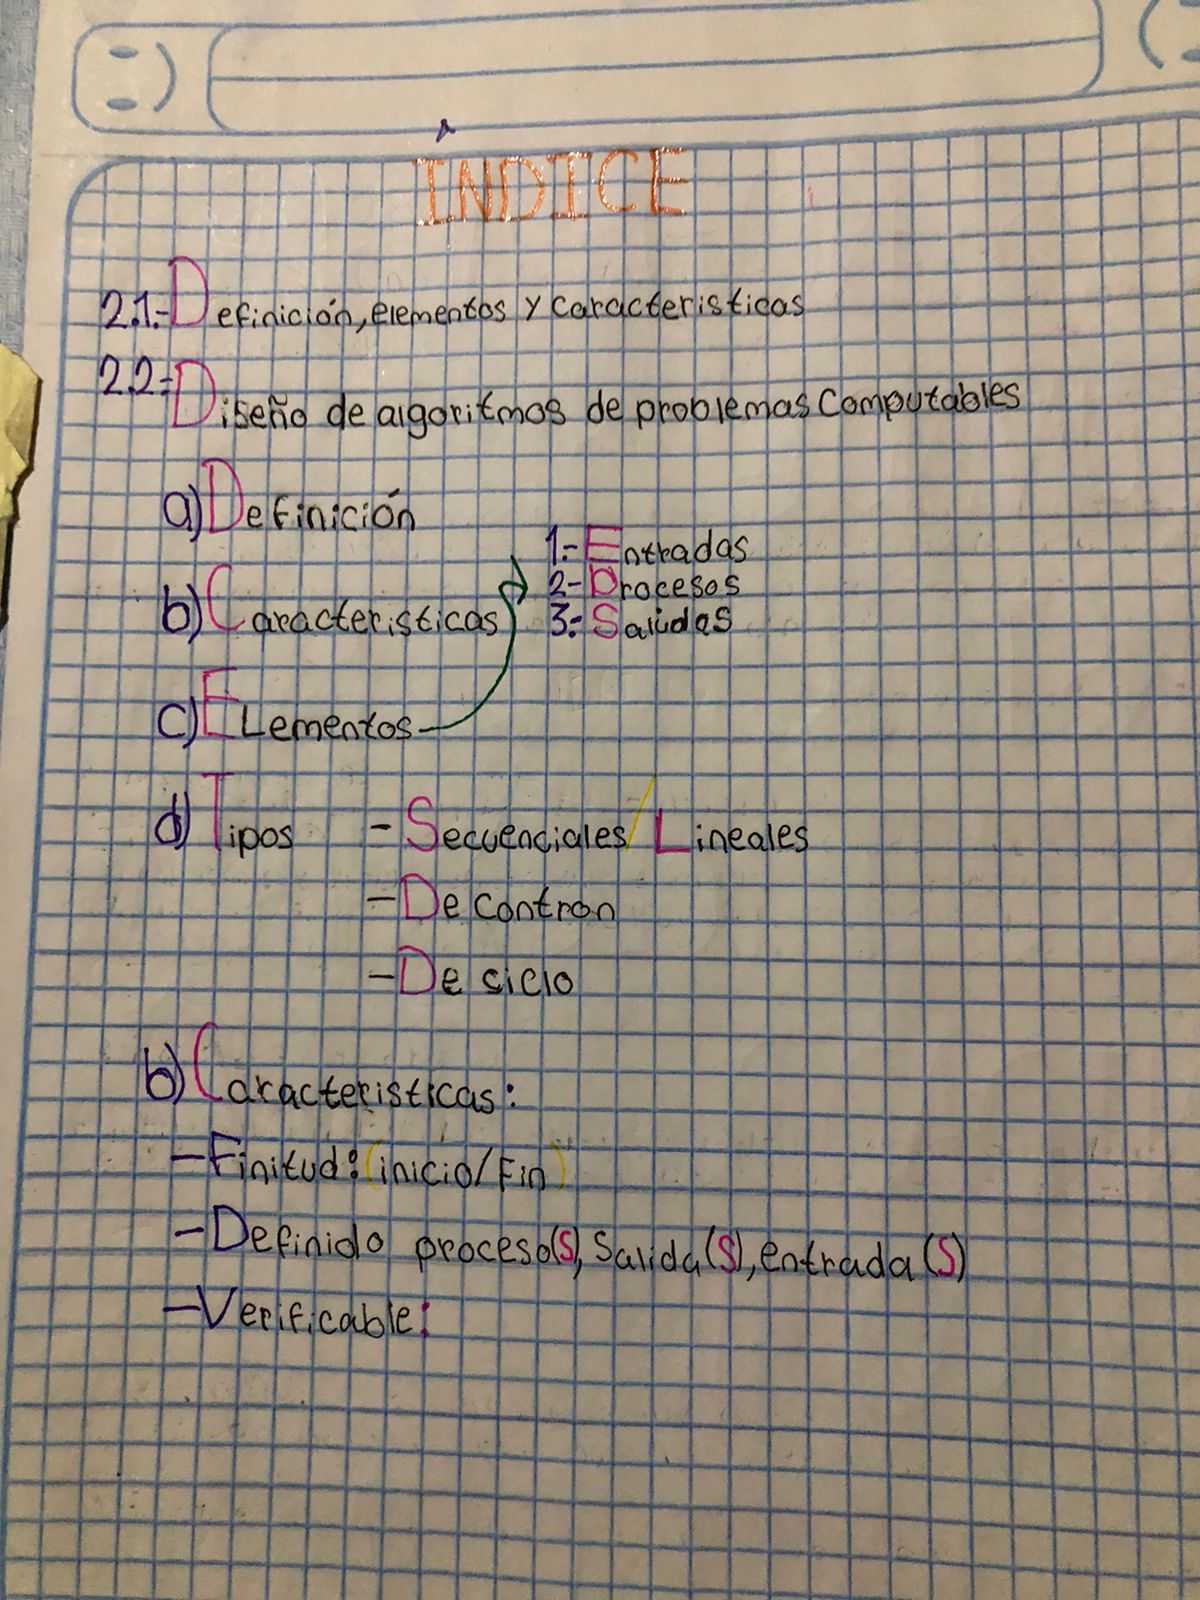 ÍNDICE
2.1.-Definición, elementos y caracteristicas
2.2=Diseño de algoritmos de problemas computables
a) Definición
b) Caracteristicas
1.- Entradas
2- Procesos
3.- Salidas
c) Elementos
d) Tipos - Secuenciales/Lineales
- De contron
- De siclo
b) Caracteristicas:
- Finitud: (inicio/Fin)
- Definido proceso(s), Salida(s), entrada(s)
- Verificable: